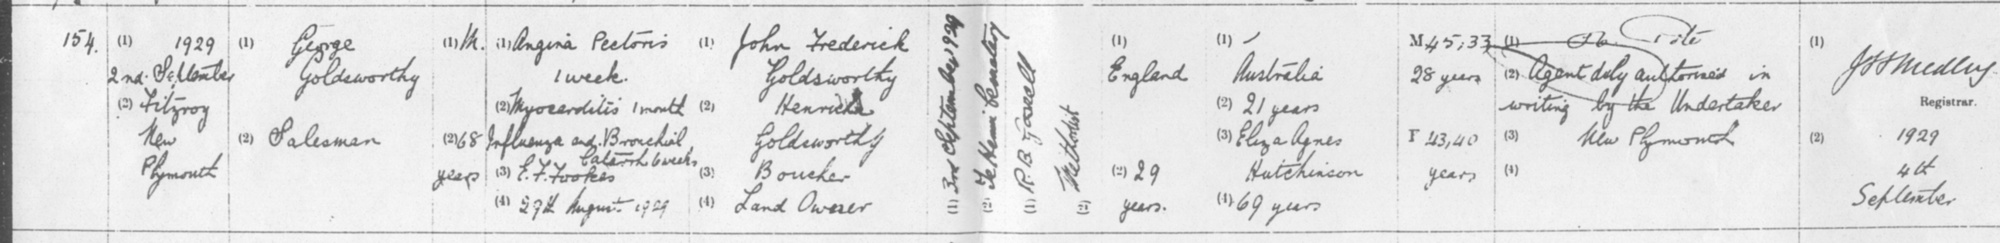 154.
(1) 1929
2nd. September
(2) Fitzroy
New
Plymouth
(1) George
Goldsworthy
(2) Salesman
(1) M.
(2) 68
years
(1) Angina Pectoris
1 week.
(2) Myocarditis 1 month
Influenza and Bronchial
Catarrh 6 weeks
(3) E. F. Fookes
(4) 29th August 1929
(1) John Frederick
Goldsworthy
(2) Henrietta
Goldsworthy
(3) Boucher
(4) Land Owner
(1) 3rd September 1929
(2) Te Henui Cemetery
(1) R. B.
(2) Methodist
(1)
England
(2) 29
years.
(1)
Australia
(2) 21 years
(3) Eliza Agnes
Hutchinson
(4) 69 years
M 45, 33
28 years
F 43, 40
years
(1)
(2) Agent duly authorised in
writing by the Undertaker
(3) New Plymouth
(4)
(1)
Medley
Registrar.
(2) 1929
4th
September